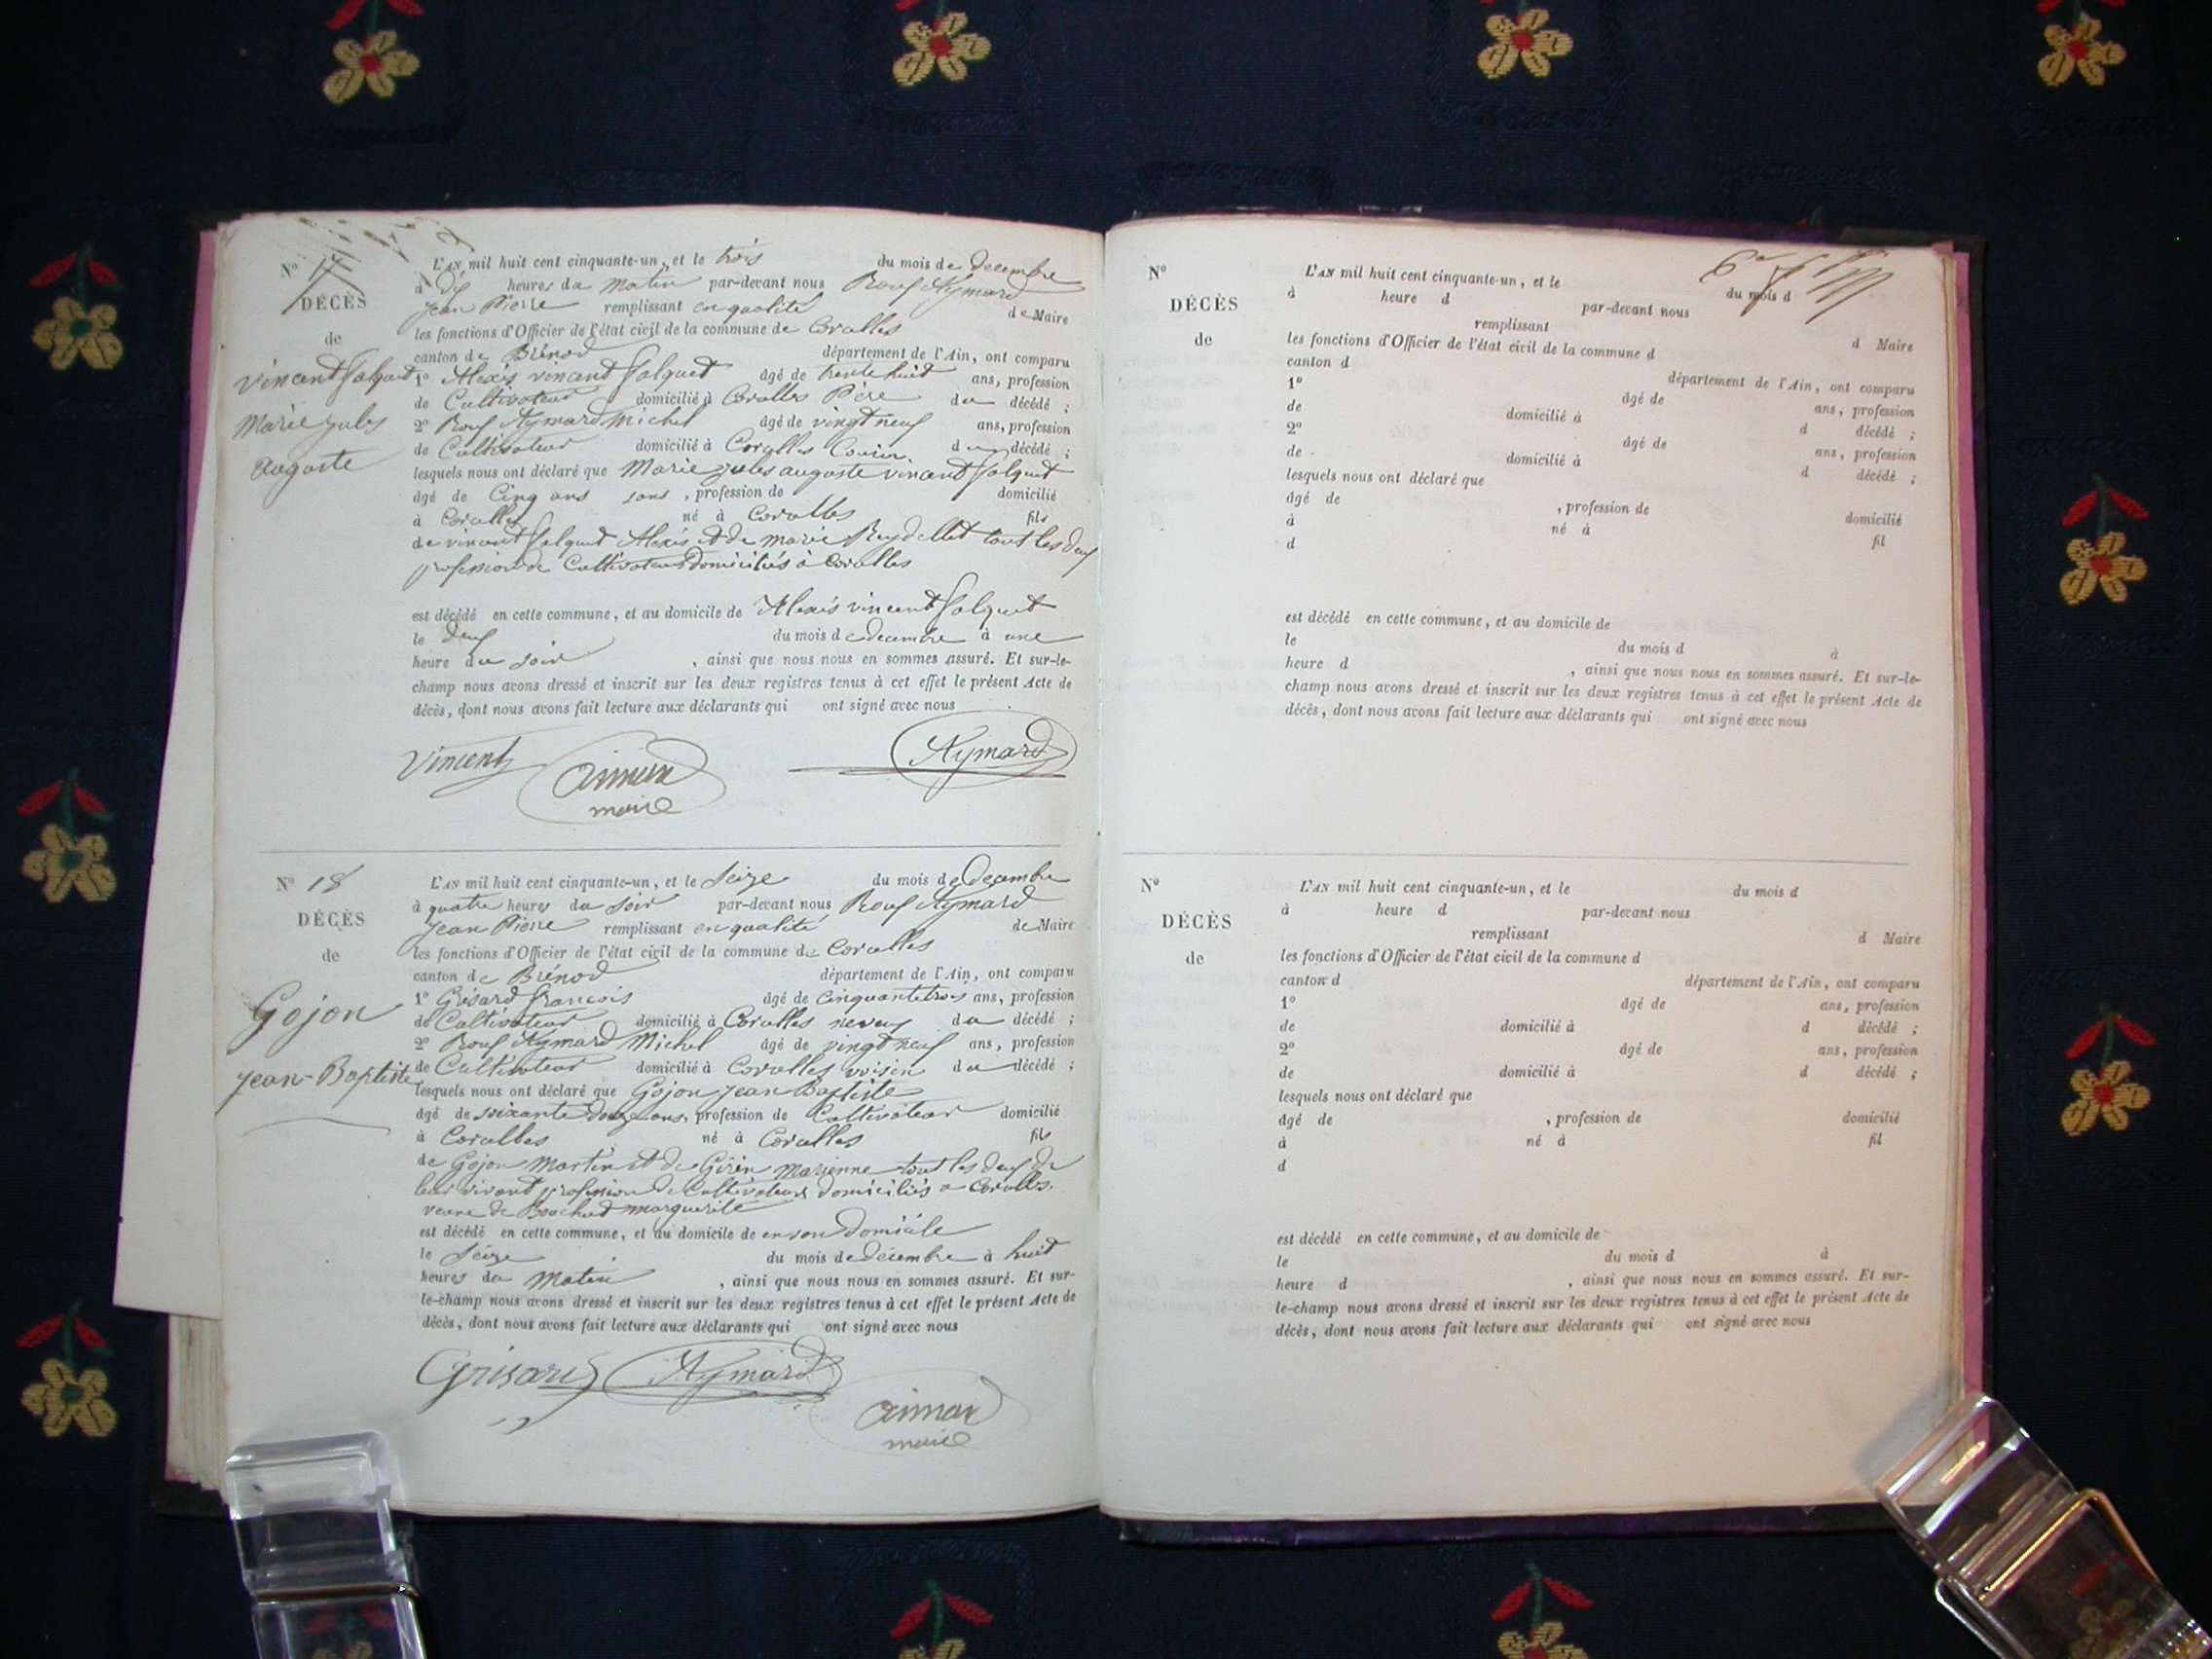 N° 17
DÉCÈS
de
Vincent Solquet
Marie jules
auguste
L'AN mil huit cent cinquante-un, et le trois du mois de decembre
à dix heures du Matin par-devant nous Roux Aymard
jean Pierre remplissant en qualité de Maire
les fonctions d'Officier de l'état civil de la commune de Corcelles
canton de Brénod département de l'Ain, ont comparu
1° Alexis vincent Solquet âgé de trente huit ans, profession
de Cultivateur domicilié à Corcelles Père du décédé ;
2° Roux Aymard Michel âgé de vingt neuf ans, profession
de Cultivateur domicilié à Corcelles Cousin du décédé ;
lesquels nous ont déclaré que Marie jules auguste vincent Solquet
âgé de Cinq ans sans , profession de domicilié
à Corcelles né à Corcelles fils
de vincent Solquet Alexis et de marie Reydellet tout les deux
profession de Cultivateurs domiciliés à Corcelles
est décédé en cette commune, et au domicile de Alexis vincent Solquet
le deux du mois de decembre à une
heure du soir , ainsi que nous nous en sommes assuré. Et sur-le-
champ nous avons dressé et inscrit sur les deux registres tenus à cet effet le présent Acte de
décès, dont nous avons fait lecture aux déclarants qui ont signé avec nous
Vincent Aymard
aimar
maire
N° 18
DÉCÈS
de
Gojon
jean-Baptiste
L'AN mil huit cent cinquante-un, et le Seize du mois de Decembre
à quatre heures du soir par-devant nous Roux Aymard
jean Pierre remplissant en qualité de Maire
les fonctions d'Officier de l'état civil de la commune de Corcelles
canton de Brénod département de l'Ain, ont comparu
1° Grisard francois âgé de cinquante trois ans, profession
de Cultivateur domicilié à Corcelles neveux du décédé ;
2° Roux Aymard Michel âgé de vingt neuf ans, profession
de Cultivateur domicilié à Corcelles voisin du décédé ;
lesquels nous ont déclaré que Gojon jean Baptiste
âgé de soixante douze ans, profession de Cultivateur domicilié
à Corcelles né à Corcelles fils
de Gojon Martin et de Girin Marienne tout les deux de
leur vivant profession de Cultivateurs domiciliés a Corcelles.
veuve de Bachod marguerite
est décédé en cette commune, et au domicile de en son Domicile
le Seize du mois de Décembre à huit
heures du Matin , ainsi que nous nous en sommes assuré. Et sur-
le-champ nous avons dressé et inscrit sur les deux registres tenus à cet effet le présent Acte de
décès, dont nous avons fait lecture aux déclarants qui ont signé avec nous
Grisard Aymard
aimar
maire
N°
DÉCÈS
de
L'AN mil huit cent cinquante-un, et le du mois d
à heure d par-devant nous
remplissant d Maire
les fonctions d'Officier de l'état civil de la commune d
canton d département de l'Ain, ont comparu
1° âgé de ans, profession
de domicilié à d décédé ;
2° âgé de ans, profession
de domicilié à d décédé ;
lesquels nous ont déclaré que
âgé de , profession de domicilié
à né à fil
d
est décédé en cette commune, et au domicile de
le du mois d à
heure d , ainsi que nous nous en sommes assuré. Et sur-le-
champ nous avons dressé et inscrit sur les deux registres tenus à cet effet le présent Acte de
décès, dont nous avons fait lecture aux déclarants qui ont signé avec nous
N°
DÉCÈS
de
L'AN mil huit cent cinquante-un, et le du mois d
à heure d par-devant nous
remplissant d Maire
les fonctions d'Officier de l'état civil de la commune d
canton d département de l'Ain, ont comparu
1° âgé de ans, profession
de domicilié à d décédé ;
2° âgé de ans, profession
de domicilié à d décédé ;
lesquels nous ont déclaré que
âgé de , profession de domicilié
à né à fil
d
est décédé en cette commune, et au domicile de
le du mois d à
heure d , ainsi que nous nous en sommes assuré. Et sur-
le-champ nous avons dressé et inscrit sur les deux registres tenus à cet effet le présent Acte de
décès, dont nous avons fait lecture aux déclarants qui ont signé avec nous